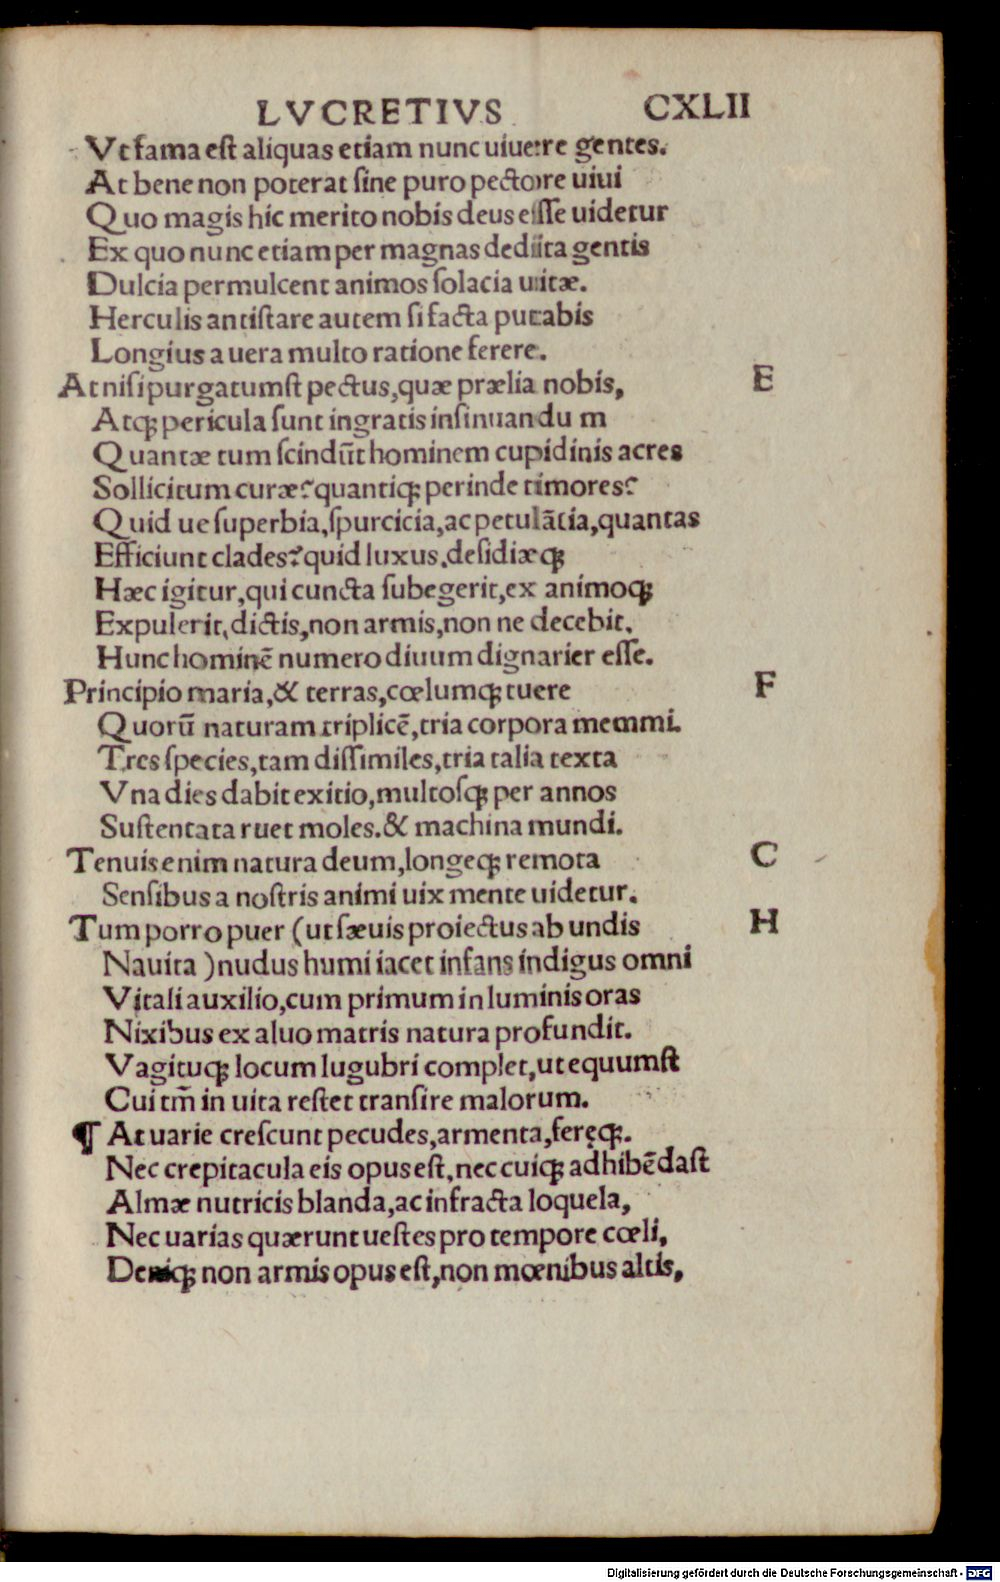 LVCRETIVS CXLII
Vt fama est aliquas etiam nunc uiuere gentes.
At bene non poterat sine puro pectore uiui
Quo magis hic merito nobis deus esse uidetur
Ex quo nunc etiam per magnas dedita gentis
Dulcia permulcent animos solacia uitæ.
Herculis antistare autem si facta putabis
Longius a uera multo ratione ferere.
At nisi purgatumst pectus, quæ prælia nobis, E
Atq; pericula sunt ingratis insinuandu m
Quantæ tum scindūt hominem cupidinis acres
Sollicitum curæ? quantiq; perinde timores?
Quid ue superbia, spurcicia, ac petulātia, quantas
Efficiunt clades? quid luxus. desidiæq;
Hæc igitur, qui cuncta subegerit, ex animoq;
Expulerit, dictis, non armis, non ne decebit.
Hunc hominē numero diuum dignarier esse.
Principio maria, & terras, cœlumq; tuere F
Quorū naturam triplicē, tria corpora memmi.
Tres species, tam dissimiles, tria talia texta
Vna dies dabit exitio, multosq; per annos
Sustentata ruet moles. & machina mundi.
Tenuis enim natura deum, longeq; remota C
Sensibus a nostris animi uix mente uidetur.
Tum porro puer (ut sæuis proiectus ab undis H
Nauita ) nudus humi iacet infans indigus omni
Vitali auxilio, cum primum in luminis oras
Nixibus ex aluo matris natura profundit.
Vagituq; locum lugubri complet, ut equumst
Cui tm̄ in uita restet transire malorum.
¶ At uarie crescunt pecudes, armenta, feręq;.
Nec crepitacula eis opus est, nec cuiq; adhibēdast
Almæ nutricis blanda, ac infracta loquela,
Nec uarias quærunt uestes pro tempore cœli,
Deniq; non armis opus est, non mœnibus altis,
Digitalisierung gefördert durch die Deutsche Forschungsgemeinschaft - DFG